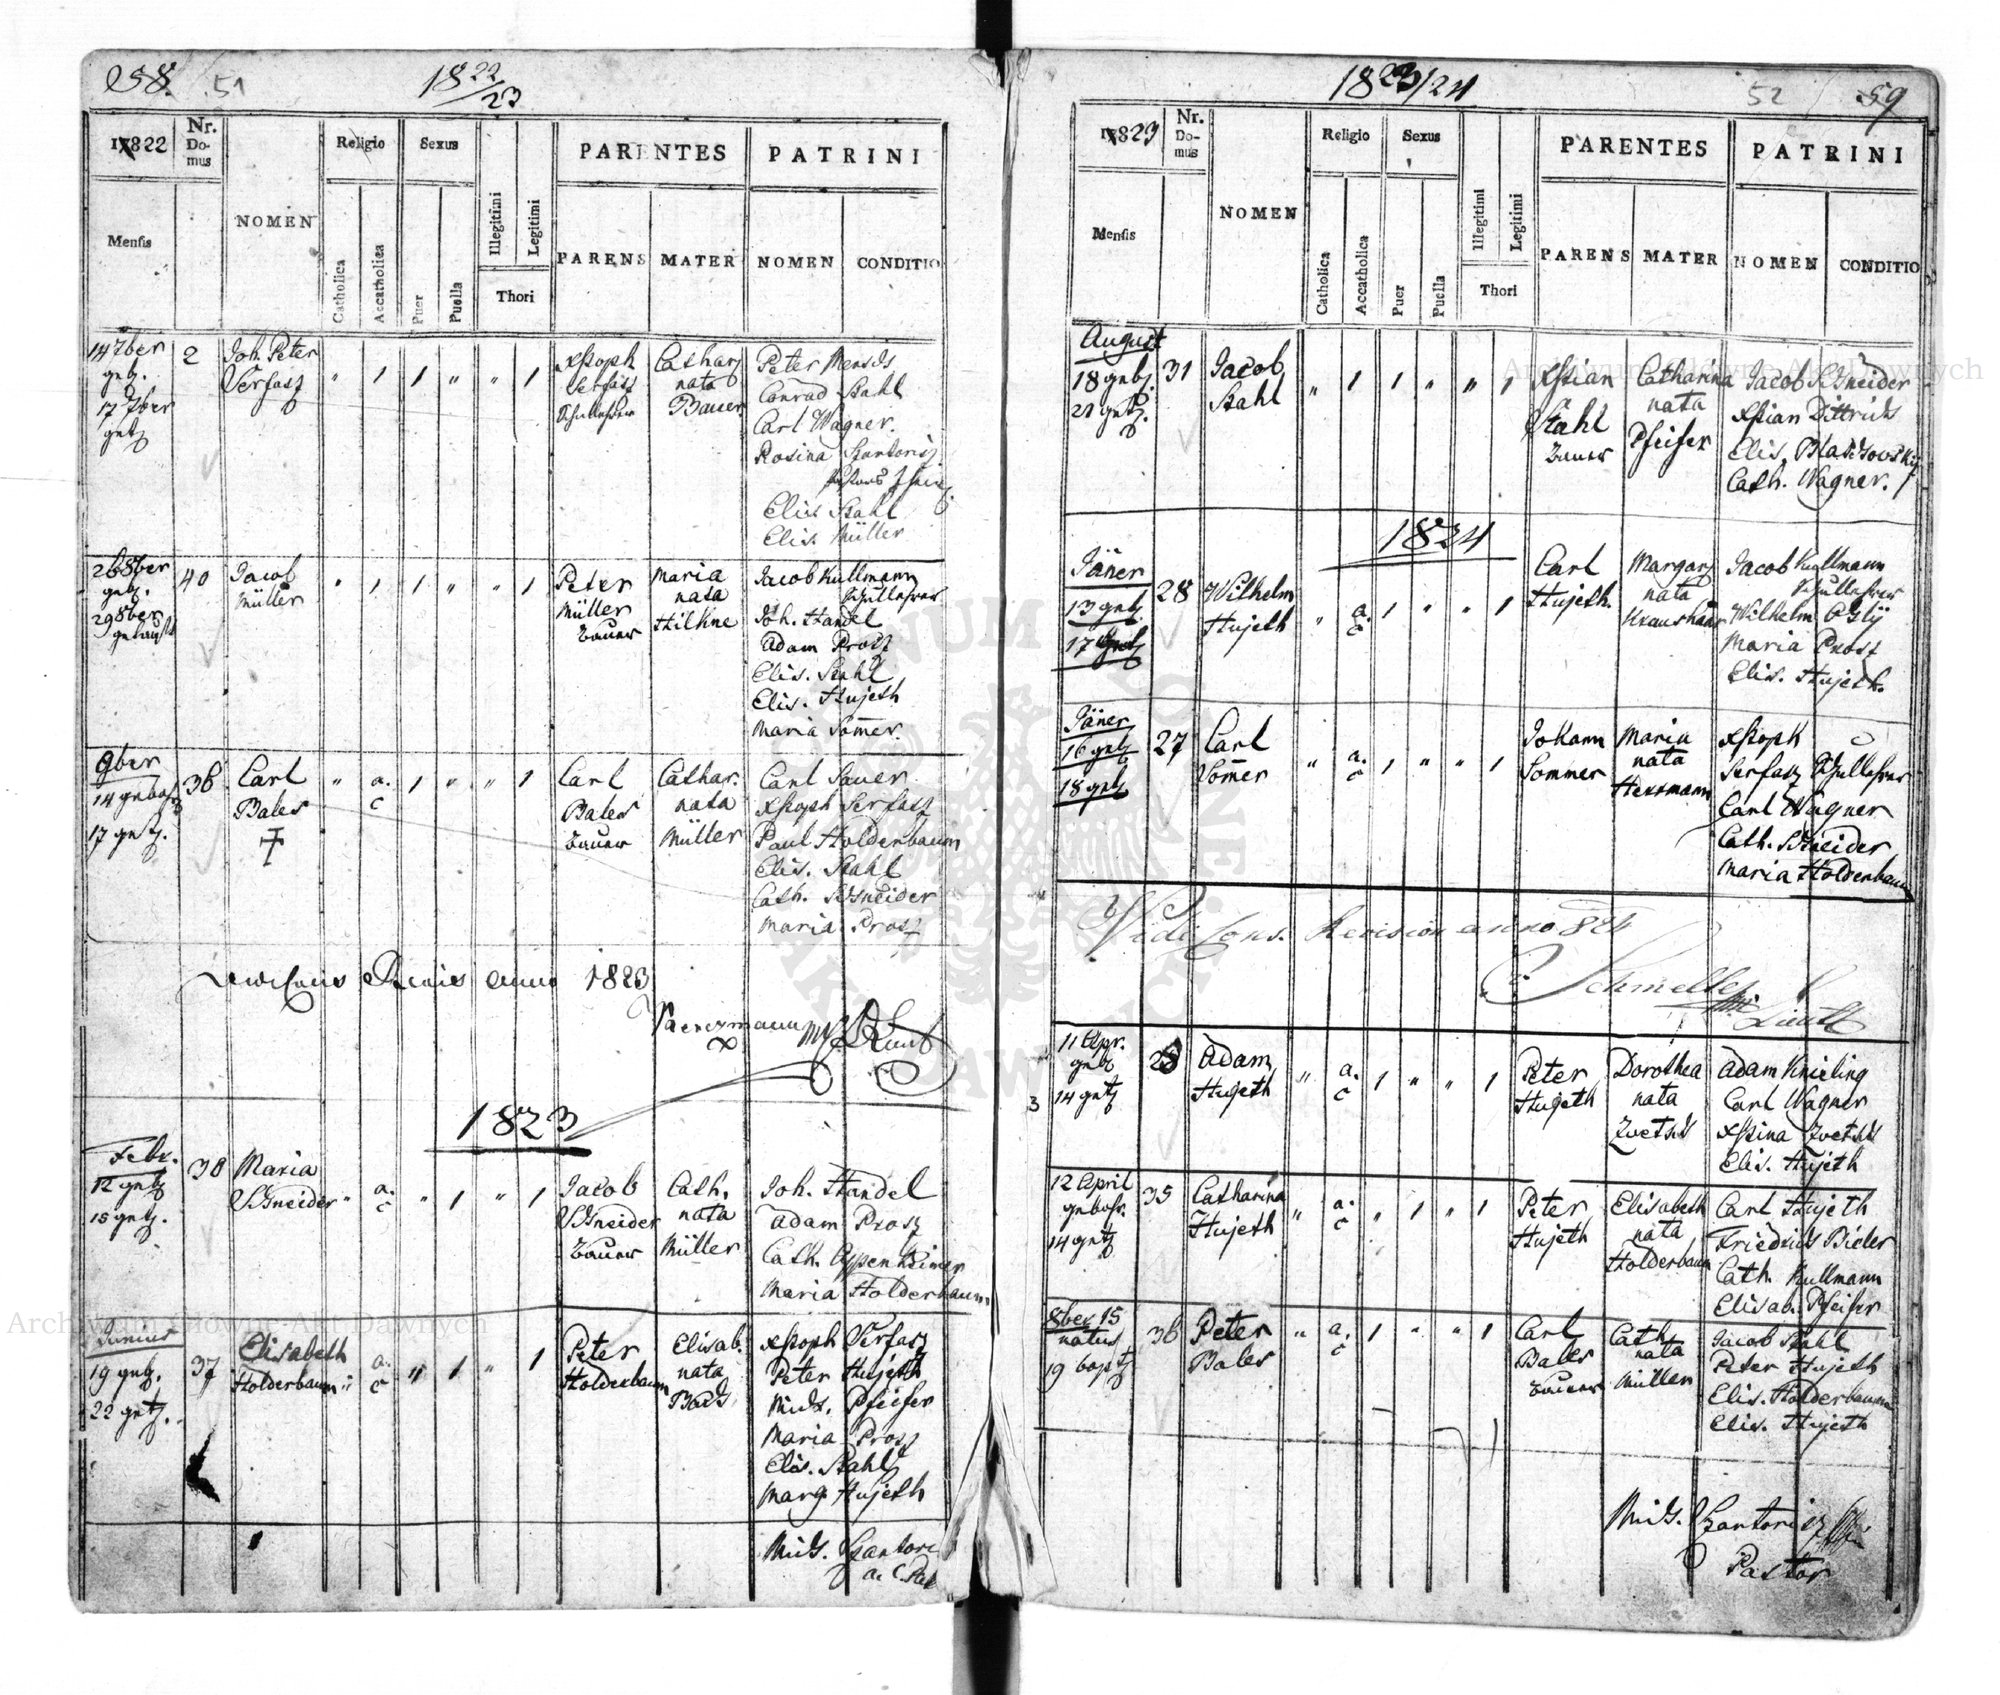 58. 51
18 22/23
17822
Nr. Domus
NOMEN
Religio
Sexus
PARENTES
PATRINI
Mensis
Catholica
Accatholica
Puer
Puella
Illegitimi
Legitimi
Thori
PARENS
MATER
NOMEN
CONDITIO
14 7ber
geb.
17 7ber
get.
2
Joh. Peter
Serfasz
" 1 1 " " 1
Xstoph
Serfasz
Schullehrer
Cathar.
nata
Bauer
Peter
Conrad Stahl
Carl Wagner.
Rosina Sartorisz
Elis Stahl
Elis. Müller
26 8ber
geb.
29 8ber
getauft
40
Jacob
Müller
" 1 1 " " 1
Peter
Müller
Bauer
Maria
nata
Hilkne
Jacob Kullmann
Schullehrer
Joh. Handel
Adam Prosz
Elis. Stahl
Elis. Hujeth
Maria Som̄er.
9ber
14 gebor.
17 get.
36
Carl
Baler
" a. c 1 " " 1
Carl
Baler
Bauer
Cathar.
nata
Müller
Carl Sauer
Xstoph Serfasz
Paul Holderbaum
Elis. Stahl
Cath. Schneider
Maria Prosz
anno 1823
1823
Febr.
12 geb
15 get.
38
Maria
Schneider
" a. c " 1 " 1
Jacob
Schneider
Bauer
Cath.
nata
Müller
Joh. Handel
Adam Prosz
Cath. Oppenheimer
Maria Holderbaum
Junius
19 geb.
22 get.
37
Elisabeth
Holderbaum
" a. c " 1 " 1
Peter
Holderbaum
Elisab.
nata
Bach
Xstoph Serfasz
Peter Hujeth
Mich. Pfeifer
Maria Prosz
Elis. Stahl
Marg. Hujeth
Mich. Sartori
1823/24
52 59
17823
Nr. Domus
NOMEN
Religio
Sexus
PARENTES
PATRINI
Mensis
Catholica
Accatholica
Puer
Puella
Illegitimi
Legitimi
Thori
PARENS
MATER
NOMEN
CONDITIO
August
18 geb.
21 get.
31
Jacob
Stahl
" 1 1 " " 1
Xstian
Stahl
Bauer
Catharina
nata
Pfeifer
Jacob Schneider
Xstian Dittrich
Elis. Blaschowsky
Cath. Wagner.
1824
Jäner
13 geb
17 get
28
Wilhelm
Hujeth
" a. c 1 " " 1
Carl
Hujeth.
Margar.
nata
Kraushaar
Jacob Kullmann
Schullehrer
Wilhelm
Maria Prosz
Elis. Hujeth.
Jäner
16 geb
18 get
27
Carl
Som̄er
" a. c 1 " " 1
Johann
Sommer
Maria
nata
Herrmann
Xstoph
Serfasz Schullehrer
Carl Wagner
Cath. Schneider
Maria Holderbaum
Vidi Cons. Revision anno 824
Schmelles
11 Apr.
geb
14 get
28
Adam
Hujeth
" a. c 1 " " 1
Peter
Hujeth
Dorothea
nata
Zwetsch
Adam Knieling
Carl Wagner
Xstina Zwetsch
Elis. Hujeth
3
12 April
gebohr.
14 get
35
Catharina
Hujeth
" a. c " 1 " 1
Peter
Hujeth
Elisabeth
nata
Holderbaum
Carl Hujeth
Friedrich Bieler
Cath. Kullmann
Elisab. Pfeifer
8ber 15
natus
19 bapt.
36
Peter
Baler
" a. c 1 " " 1
Carl
Baler
Bauer
Cath.
nata
Müller
Jacob Stahl
Peter Hujeth
Elis. Holderbaum
Elis. Hujeth
Mich. Sartorisz
Pastor
Archiwum Główne Akt Dawnych
Archiwum Główne Akt Dawnych